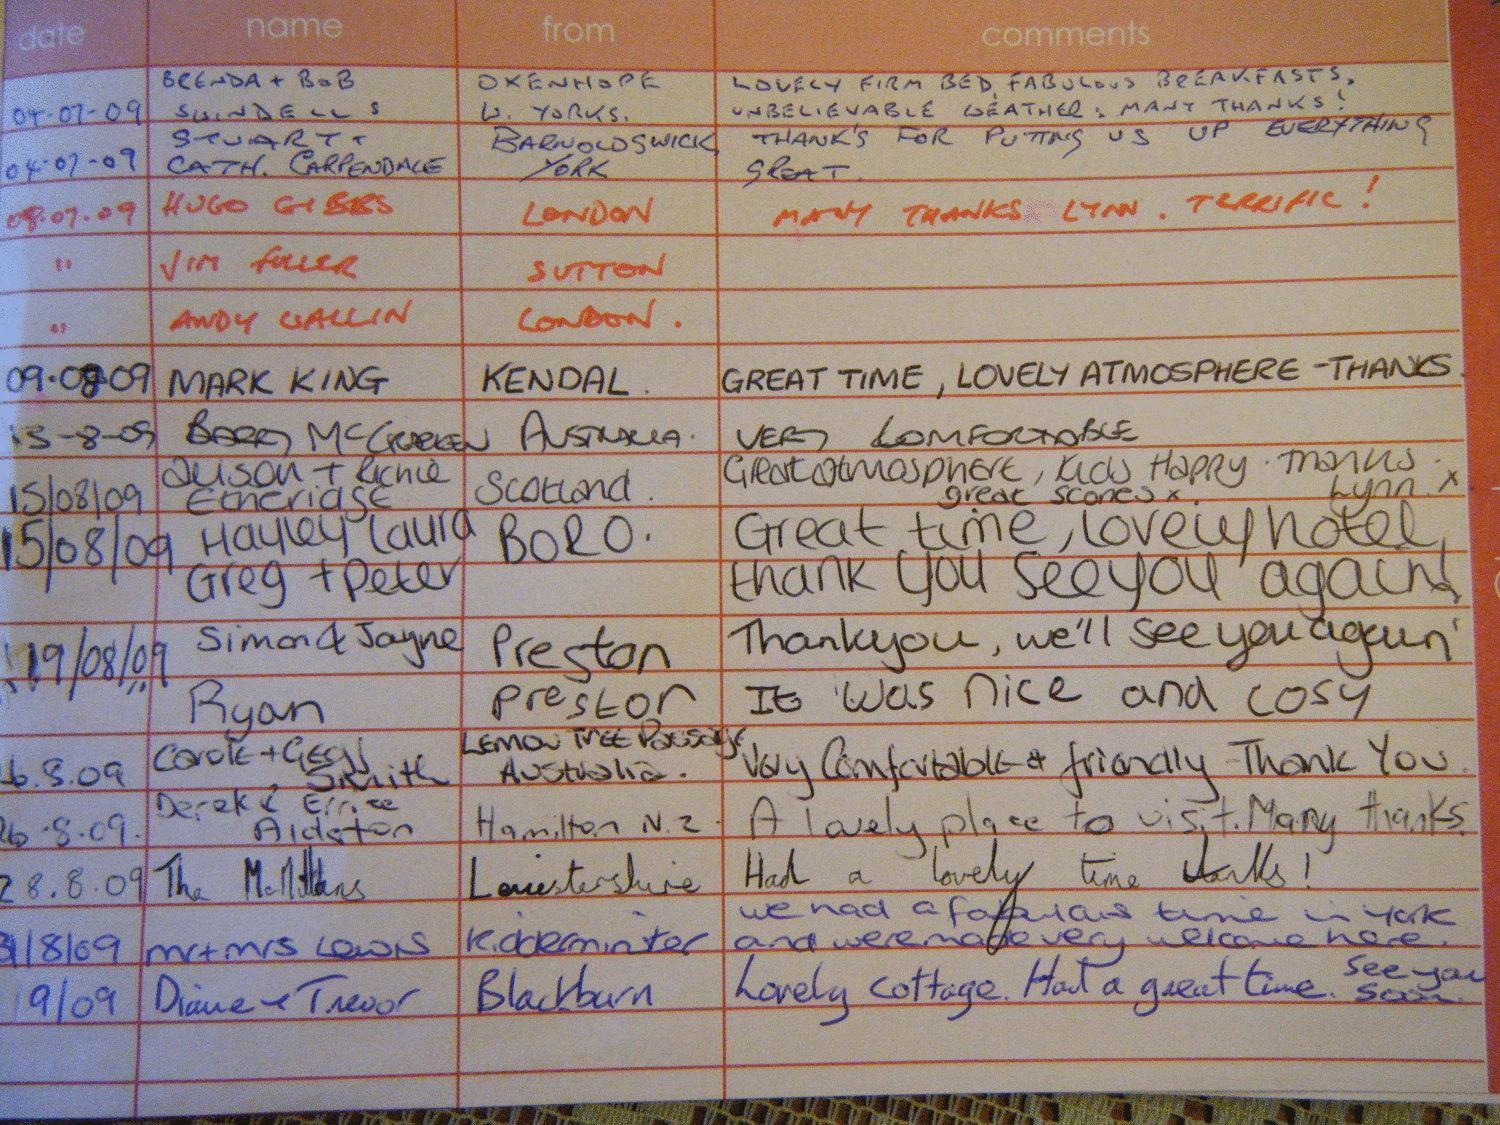 date name from comments
BRENDA + BOB OXENHOPE LOVELY FIRM BED, FABULOUS BREAKFASTS,
04-07-09 SWINDELLS W. YORKS. UNBELIEVABLE WEATHER. MANY THANKS!
STUART + BARNOLDSWICK THANK'S FOR PUTTING US UP EVERYTHING
04-07-09 CATH. CARPENDALE YORK GREAT.
08.07.09 HUGO GIBBS LONDON MANY THANKS LYNN. TERRIFIC!
" JIM FULLER SUTTON
" ANDY WALLIN LONDON.
09.08.09 MARK KING KENDAL. GREAT TIME, LOVELY ATMOSPHERE - THANKS.
13-8-09 BARRY McCRACKEN AUSTRALIA. VERY COMFORTABLE
Alison + Richie Great atmosphere, Kids Happy. Thanks
15/08/09 Etheridge Scotland. great scones x. Lynn. x
15/08/09 Hayley Laura BORO. Great time, lovely hotel,
Greg + Peter thank you see you again!
19/08/09 Simon & Jayne Preston Thankyou, we'll see you again'
Ryan Preston It was nice and cosy
Carole + Geoff LEMON TREE Passage
6.8.09 Smith Australia. Very Comfortable & friendly - Thank You.
Derek &
26-8-09. Hamilton N.Z. A lovely place to visit. Many thanks.
28.8.09 The McMillans Leicestershire Had a lovely time thanks!
we had a fabulous time in York
31/8/09 mr + mrs Lewis Kidderminster and were made very welcome here.
9/09 Diane & Trevor Blackburn Lovely cottage. Had a great time. See you
soon.